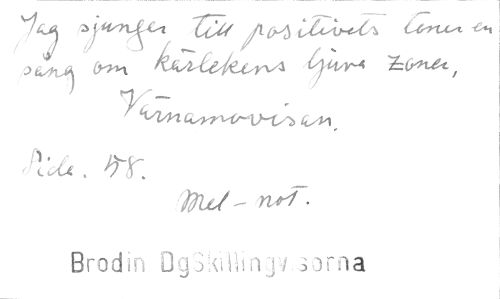 Jag sjunger till positivets toner en
sång om kärlekens ljuva zoner,
Värnamovisan.
Sida. 58.
Mel-not.
Brodin DgSkillingvisorna